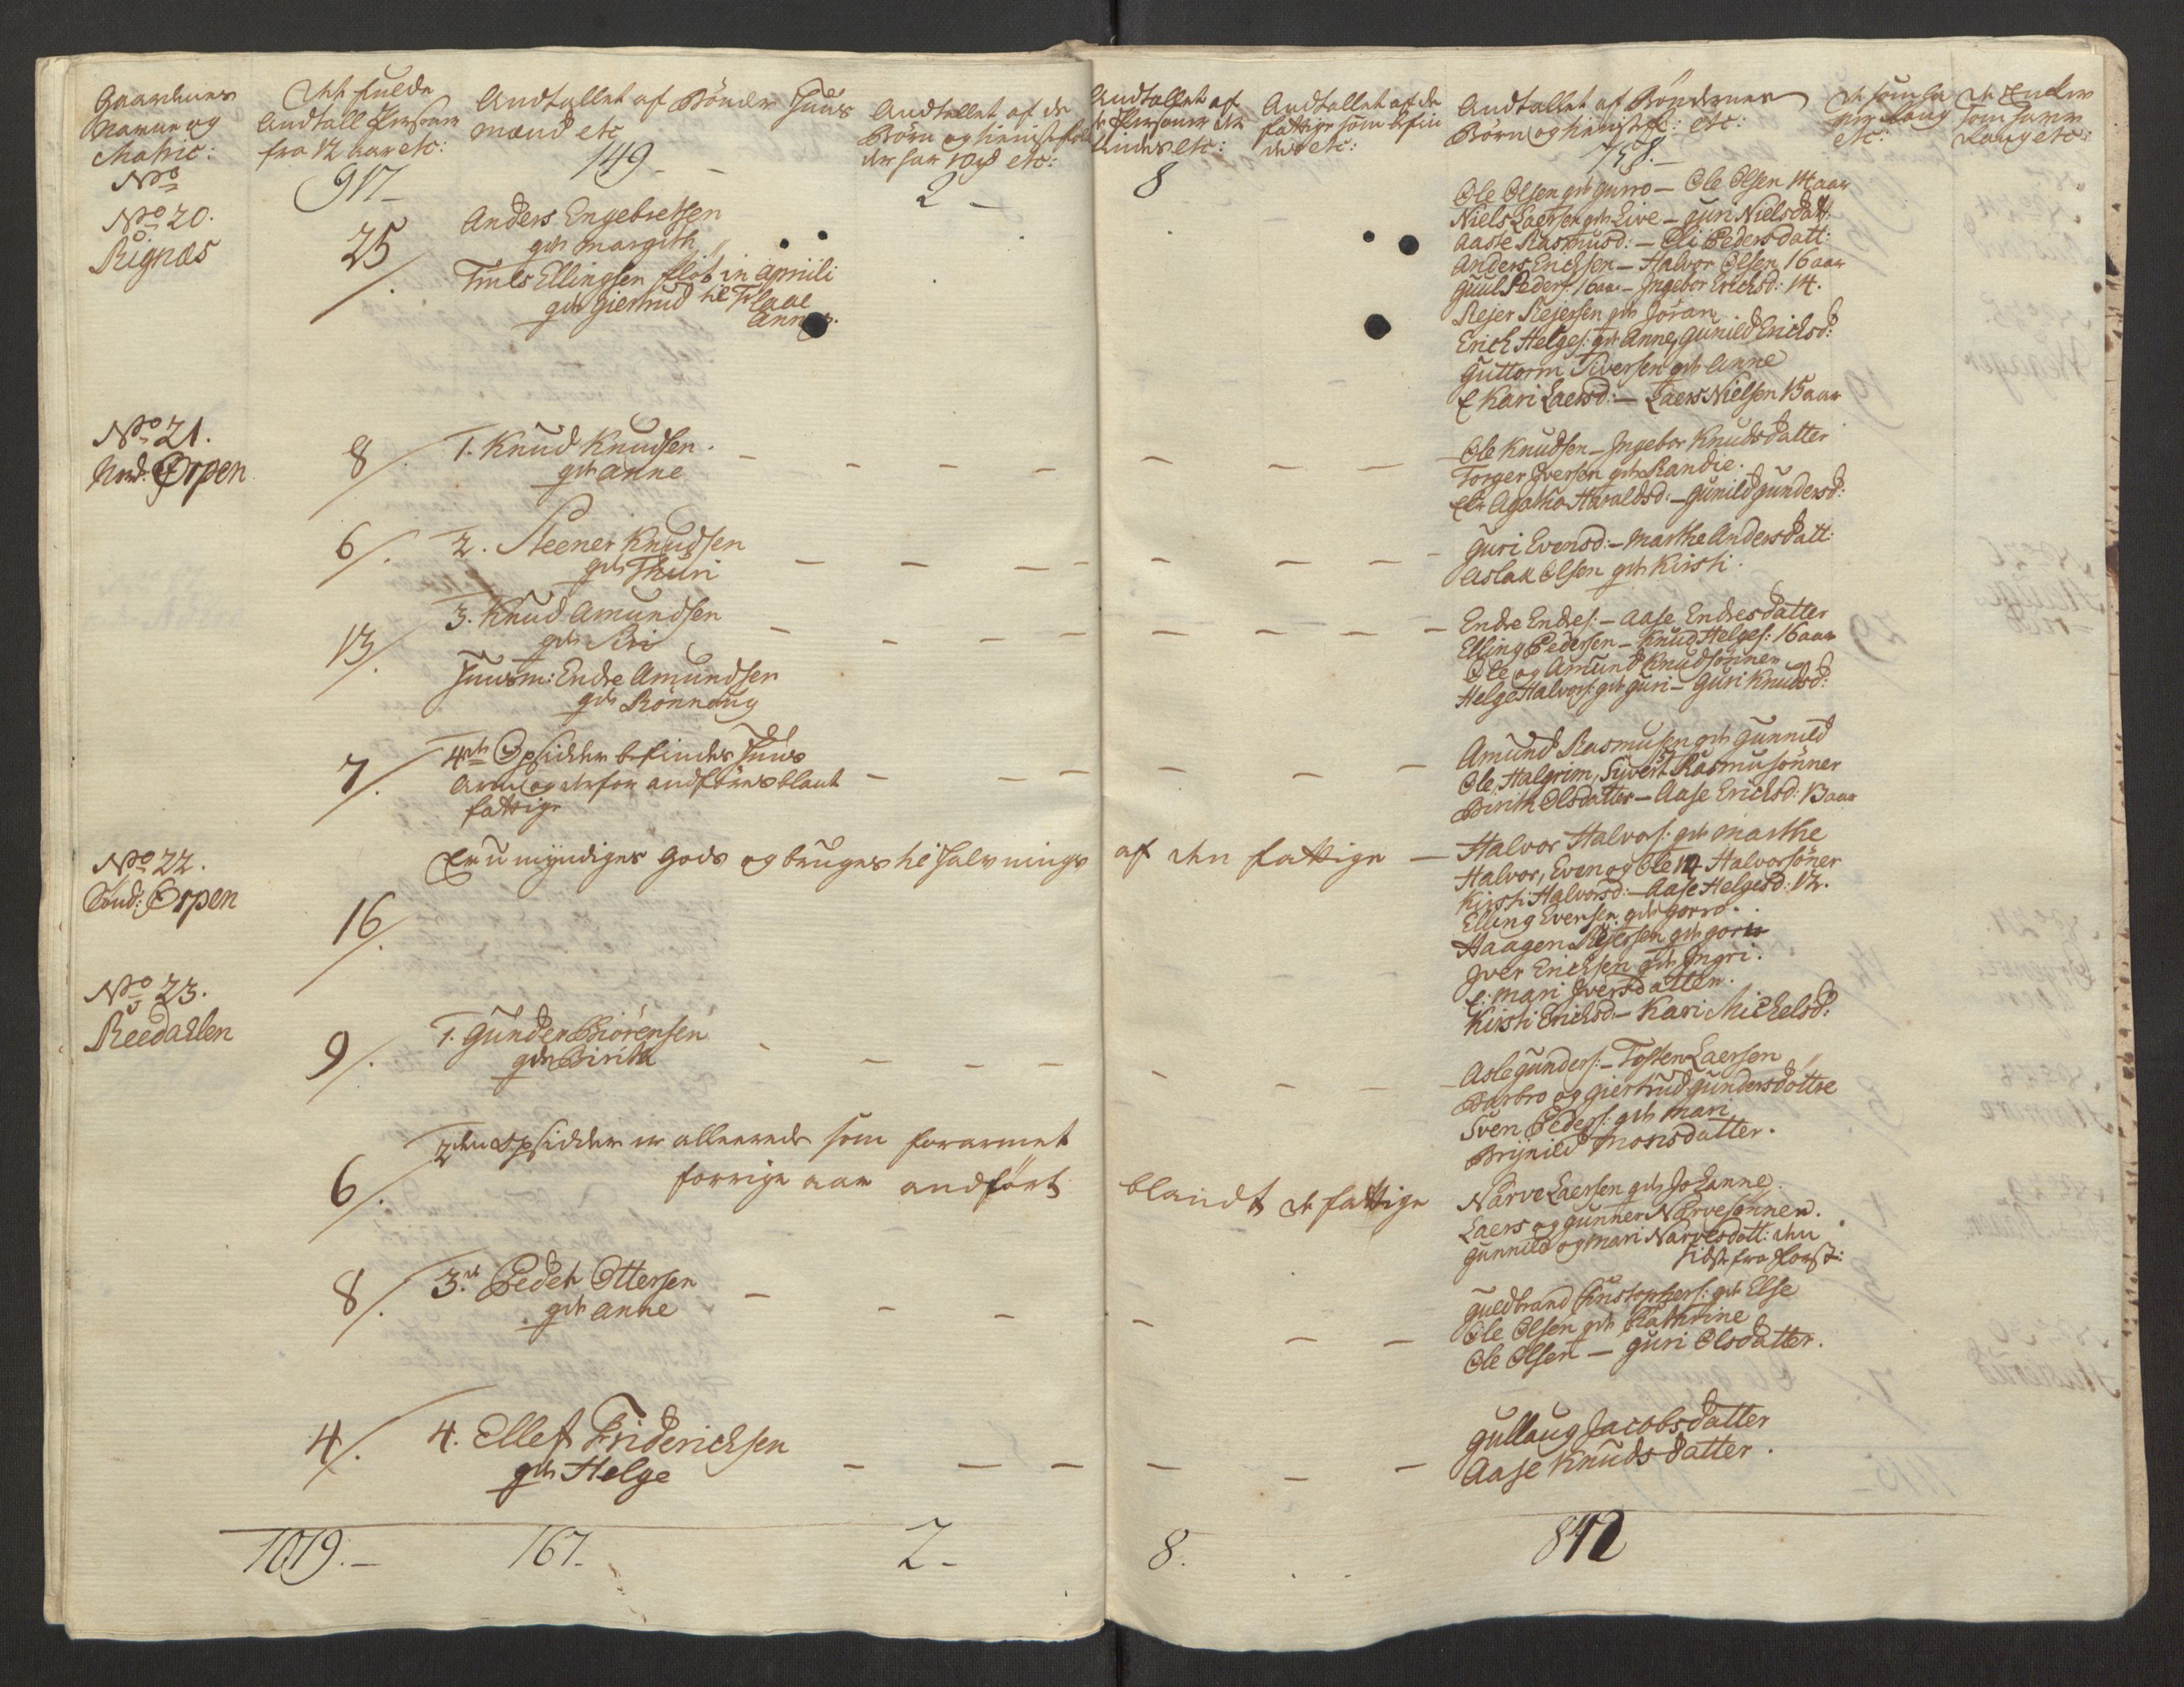 Gaardenes
Navne og
Matric:
No
Det fulde
Andtall Personer
fra 12 aar etc:
917
Andtallet af Bönder Huus
mænd etc
149
Andtallet af de
Börn og tienistefolk
der har 10rd etc:
2
Andtallet af
Personer
etc:
8
Andtallet af de
fattige som befin
des etc:
Andtallet af Böndernes
Börn og tienistf: etc:
758.
etc:
No 20.
Rignæs
25
Anders Engebretsen
gdt Margith
Truls Ellingsen fløt in Apriili
gdt Giertrud til Flaae
Annex.
Ole Olsen gdt Gurro – Ole Olsen 14 aar
Niels Laersen gdt Live – Guri Nielsdatt:
Aaste Rasmusd: – Eli Pedersdatt:
Anders Erichsen – Halvor Olsen 16 aar
Guul Peders: 16 aar – Ingebor Erichsd: 14.
Rejer Rejersen gdt Jöran
Erich Helges: gdt Anne, Gunild Erichsd:
Guttorm Siversen gdt Anne
E Kari Laersd: – Laers Nielsen 15 aar
No 21.
Nord: Ørpen
8
1. Knud Knudsen.
gdt Anne
Ole Knudsen – Ingebor Knudsdatter
Torger Iversen gdt Randie.
Enk Agatha Haraldsd: – Gunild Gundersd:
6
2. Steener Knudsen
gdt Thuri
Guri Evensd: – Marthe Andersdatt:
Aslak Olsen gdt Kirsti.
13
3. Knud Amundsen
gdt Siri
Huusm: Endre Amundsen
gdt Rönnaug
Endre Endres: – Aase Endresdatter
Elling Pedersen – Knud Helges: 16 aar
Ole og Amund Knudsönner
Helge Halvors: gdt Guri – Guri Knudsd:
7
4de Opsidder befindes Huus
Arm og derfor andföres blant
fattige
Amund Rasmusen gdt Gunnild
Ole, Halgrim, Siwert Rasmusönner
Birith Olsdatter – Aase Erichsd: 13 aar
No 22.
Sönd: Ørpen
16
Er umyndiges Gods og bruges til Halvnings af den fattige
Halvor Halvors: gdt Marthe
Halvor, Even og Ole 14 Halvorsöner
Kirsti Halvorsd: – Aase Helgesd: 12.
Elling Eversen gdt Gorro.
Haagen Rejersen gdt Goro
Iver Erichsen gdt Ingri.
E: Mari Iversdatter.
Kirsti Erichsd – Kari Michelsd:
No 23.
Reedahlen
9
1. Gunder Biörensen
gdt Birith
Asle Gunders: – Tosten Laersen
Barbro og Giertrud Gundersdöttre
Sven Peders: gdt Mari
Brynild Monsdatter.
6
2den Opsidder er allerrede som forarmet
forrige aar andfört blandt de fattige
Narve Laersen gdt Johanne.
Laers og Gunner Narvesönner.
Gunnild og Mari Narvesdatt: den
sidste fra Forst:
8
3. Peder Ottersen
gdt Anne
Guldbrand Christophers: gdt Else
Ole Olsen gdt Kathrine
Ole Olsen – Guri Olsdatter.
4
4. Ellef Friderichsen
gdt Helge
Gullaug Jacobsdatter
Aase Knudsdatter.
1019. 167. 2 8. 842